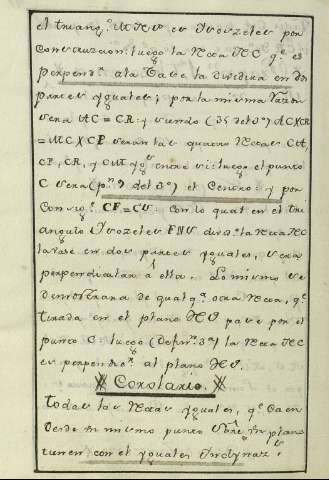 el triang.º MNS es Ysozeles por
construzion: luego la Recta NC q.º es
perpend.r a la Base la dividira en dos
partes yguales; por la misma razon
sera AC = CR: y siendo (35 del 3º) AC×CR
= MC×CF seran las quatro Rectas CA,
CF, CR, y CM yg.s entre si: luego el punto
C sera (p.n 9 del 3º) el Centro: y por
CF = CS. con lo qual en el tri
angulo Ysozeles FNS dira. la Recta NC
la vase en dos partes yguales, sera
perpendicular à ella. Lo mismo se
demostrarà de qualq.ª otra Recta, q.º
tirada en el plano HS pase por el
punto C: luego (Defin.n 3ª) la Recta NC
es perpendic.r al plano HS.
Corolario.
Todas las Rectas yguales, q.º caen
desde un mismo punto sobre un plano
tienen con el yguales Inclynaz.s